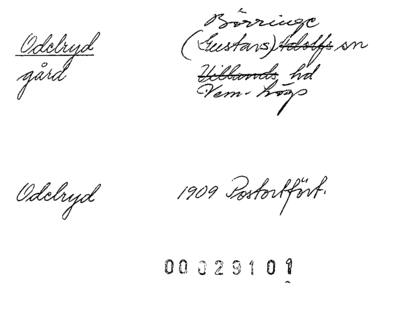 Börringe
Odelryd (Gustavs) Adolfs sn
gård Villands hd
Vem-högs
Odelryd 1909 Postortfört.
00029101